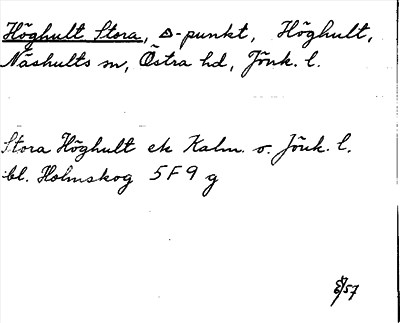 Höghult Stora, △-punkt, Höghult,
Näshults sn, Östra hd, Jönk. l.
Stora Höghult ek Kalm. o. Jönk. l.
bl. Holmskog 5F9g
57